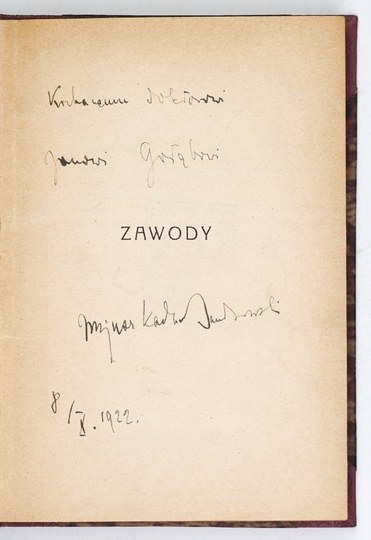 Kochanemu doktorowi
Janowi Gołąbowi
ZAWODY
Juljusz Kaden Bandrowski
8/X. 1922.